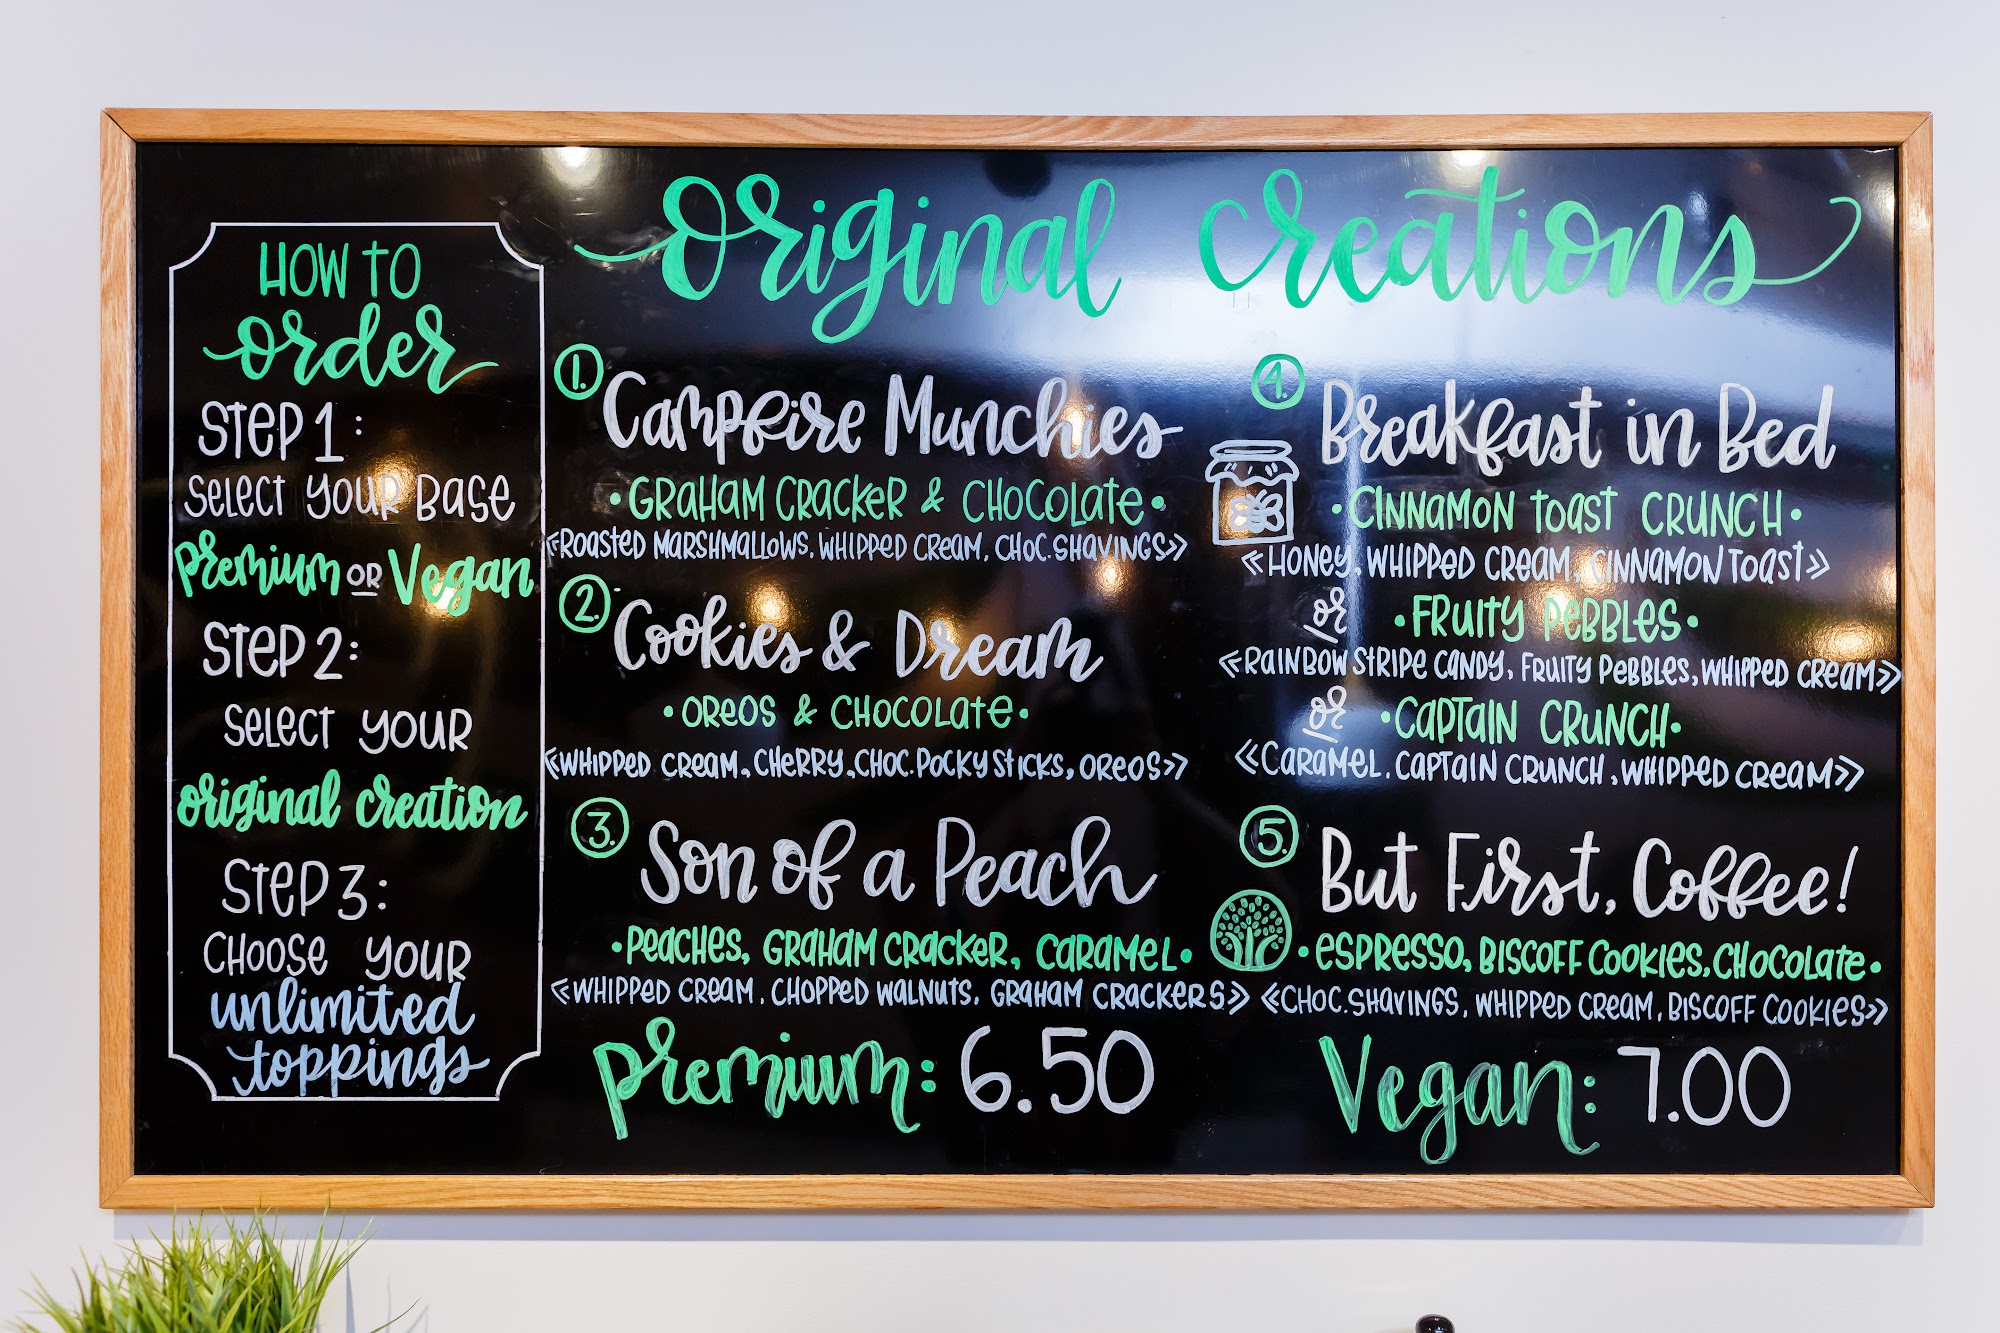 HOW TO
order
STEP 1:
SELECT YOUR BASE
Premium OR Vegan
STEP 2:
SELECT YOUR
original creation
STEP 3:
CHOOSE YOUR
unlimited
toppings
Original Creations
1. Campfire Munchies
• GRAHAM CRACKER & CHOCOLATE •
«ROASTED MARSHMALLOWS, WHIPPED CREAM, CHOC. SHAVINGS»
2. Cookies & Dream
• OREOS & CHOCOLATE •
«WHIPPED CREAM, CHERRY, CHOC. POCKY STICKS, OREOS»
3. Son of a Peach
• PEACHES, GRAHAM CRACKER, CARAMEL •
«WHIPPED CREAM, CHOPPED WALNUTS, GRAHAM CRACKERS»
Premium: 6.50
4. Breakfast in Bed
• CINNAMON TOAST CRUNCH •
«HONEY, WHIPPED CREAM, CINNAMON TOAST»
or • FRUITY PEBBLES •
«RAINBOW STRIPE CANDY, FRUITY PEBBLES, WHIPPED CREAM»
or • CAPTAIN CRUNCH •
«CARAMEL, CAPTAIN CRUNCH, WHIPPED CREAM»
5. But First, Coffee!
• ESPRESSO, BISCOFF COOKIES, CHOCOLATE •
«CHOC. SHAVINGS, WHIPPED CREAM, BISCOFF COOKIES»
Vegan: 7.00